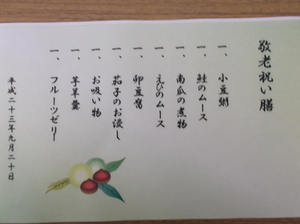 敬老祝い膳
一、小豆粥
一、鮭のムース
一、南瓜の煮物
一、えびのムース
一、卵豆腐
一、茄子のお浸し
一、お吸い物
一、羊羹
一、フルーツゼリー
平成二十三年九月二十日